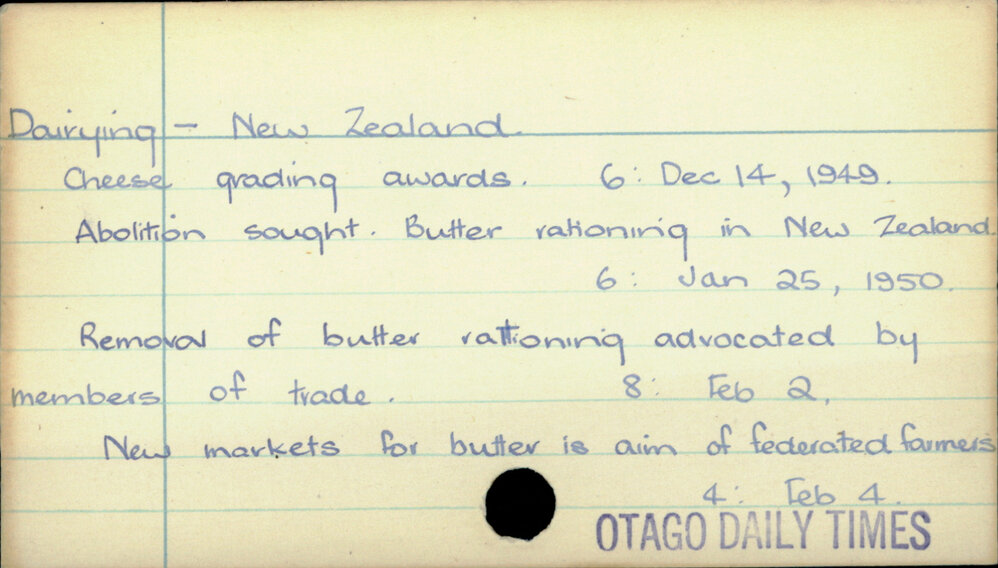 Dairying - New Zealand.
Cheese grading awards. 6: Dec 14, 1949.
Abolition sought. Butter rationing in New Zealand.
6: Jan 25, 1950.
Removal of butter rationing advocated by
members of trade. 8: Feb 2.
New markets for butter is aim of federated farmers
4: Feb 4.
OTAGO DAILY TIMES